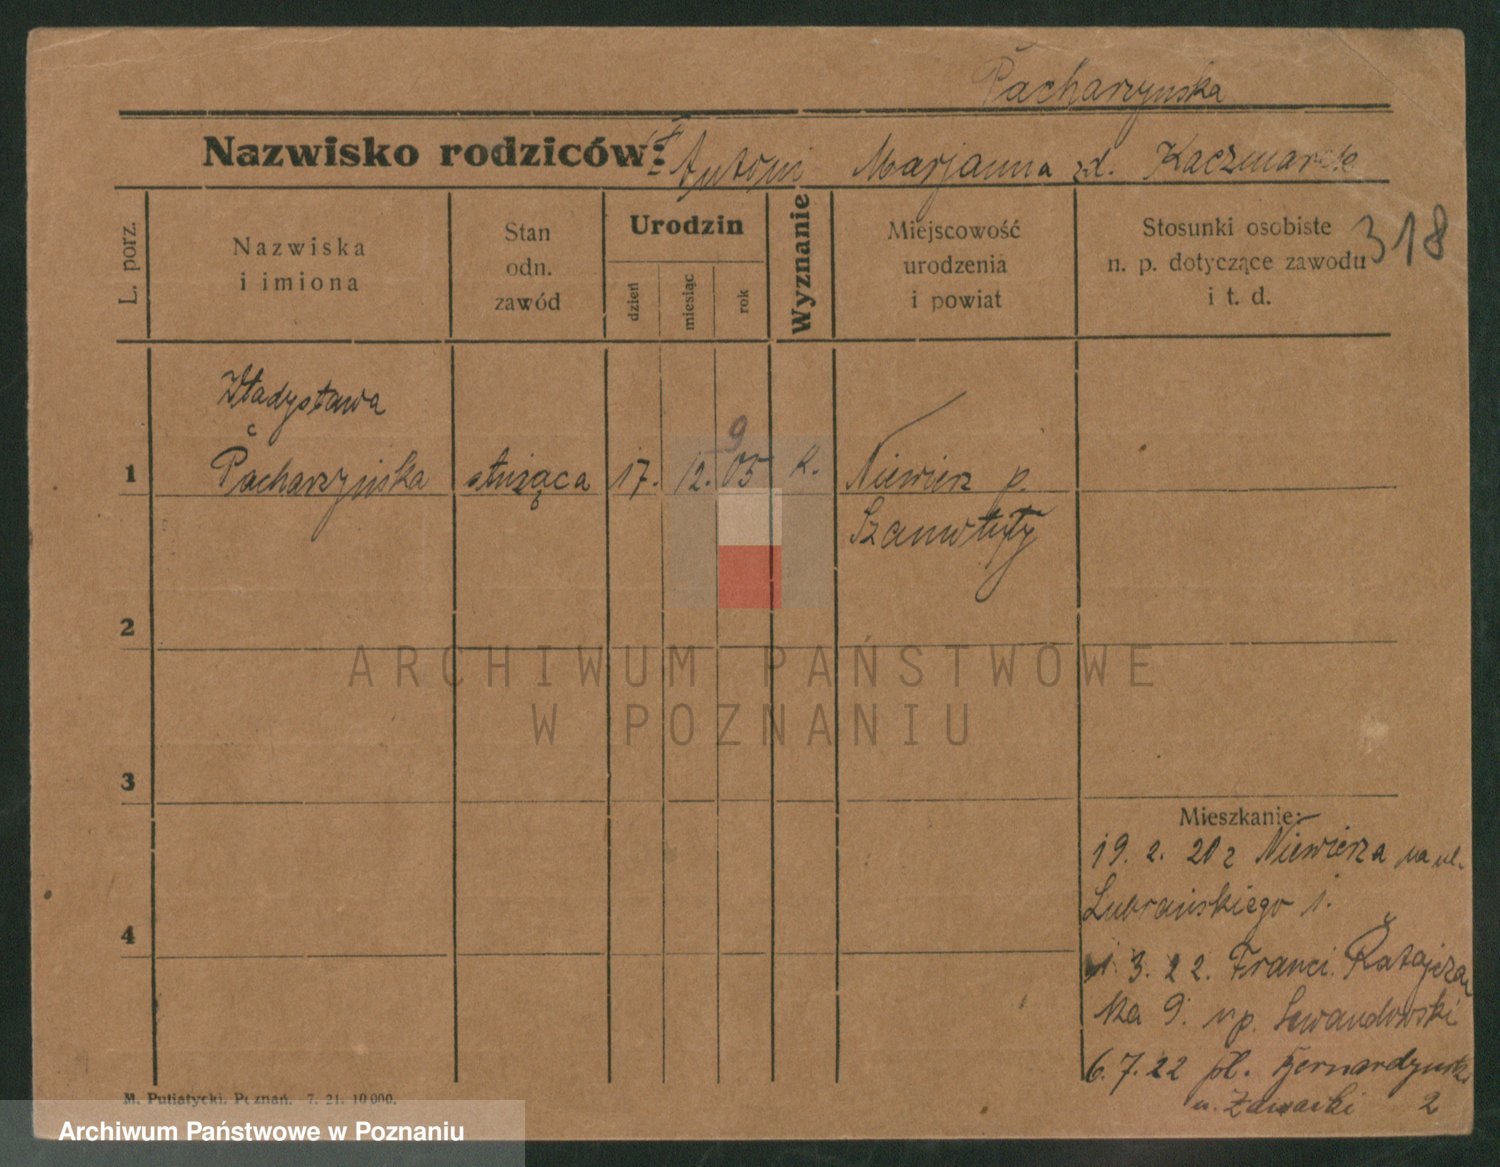 Pacharzyńska
Nazwisko rodziców: Antoni Marjanna zd. Kaczmarek
L. porz.
Nazwiska
i imiona
Stan
odn.
zawód
Urodzin
dzień
miesiąc
rok
Wyznanie
Miejscowość
urodzenia
i powiat
Stosunki osobiste
n. p. dotyczące zawodu
i t. d.
318
Władysława
9
1 Pacharzyńska służąca 17. 12. 05 k. Niewierz p.
Szamotuły
2
ARCHIWUM PAŃSTWOWE
W POZNANIU
3
Mieszkanie:
19. 2. 20 z Niewierza na ul.
Lubrańskiego 1.
4
1. 3. 22. Franci. Ratajcza
ka 9. u p. Lewandowski
6. 7. 22 pl. Bernardyński
u. 2
M. Putiatycki, Poznań. 7. 21. 10 000.
Archiwum Państwowe w Poznaniu